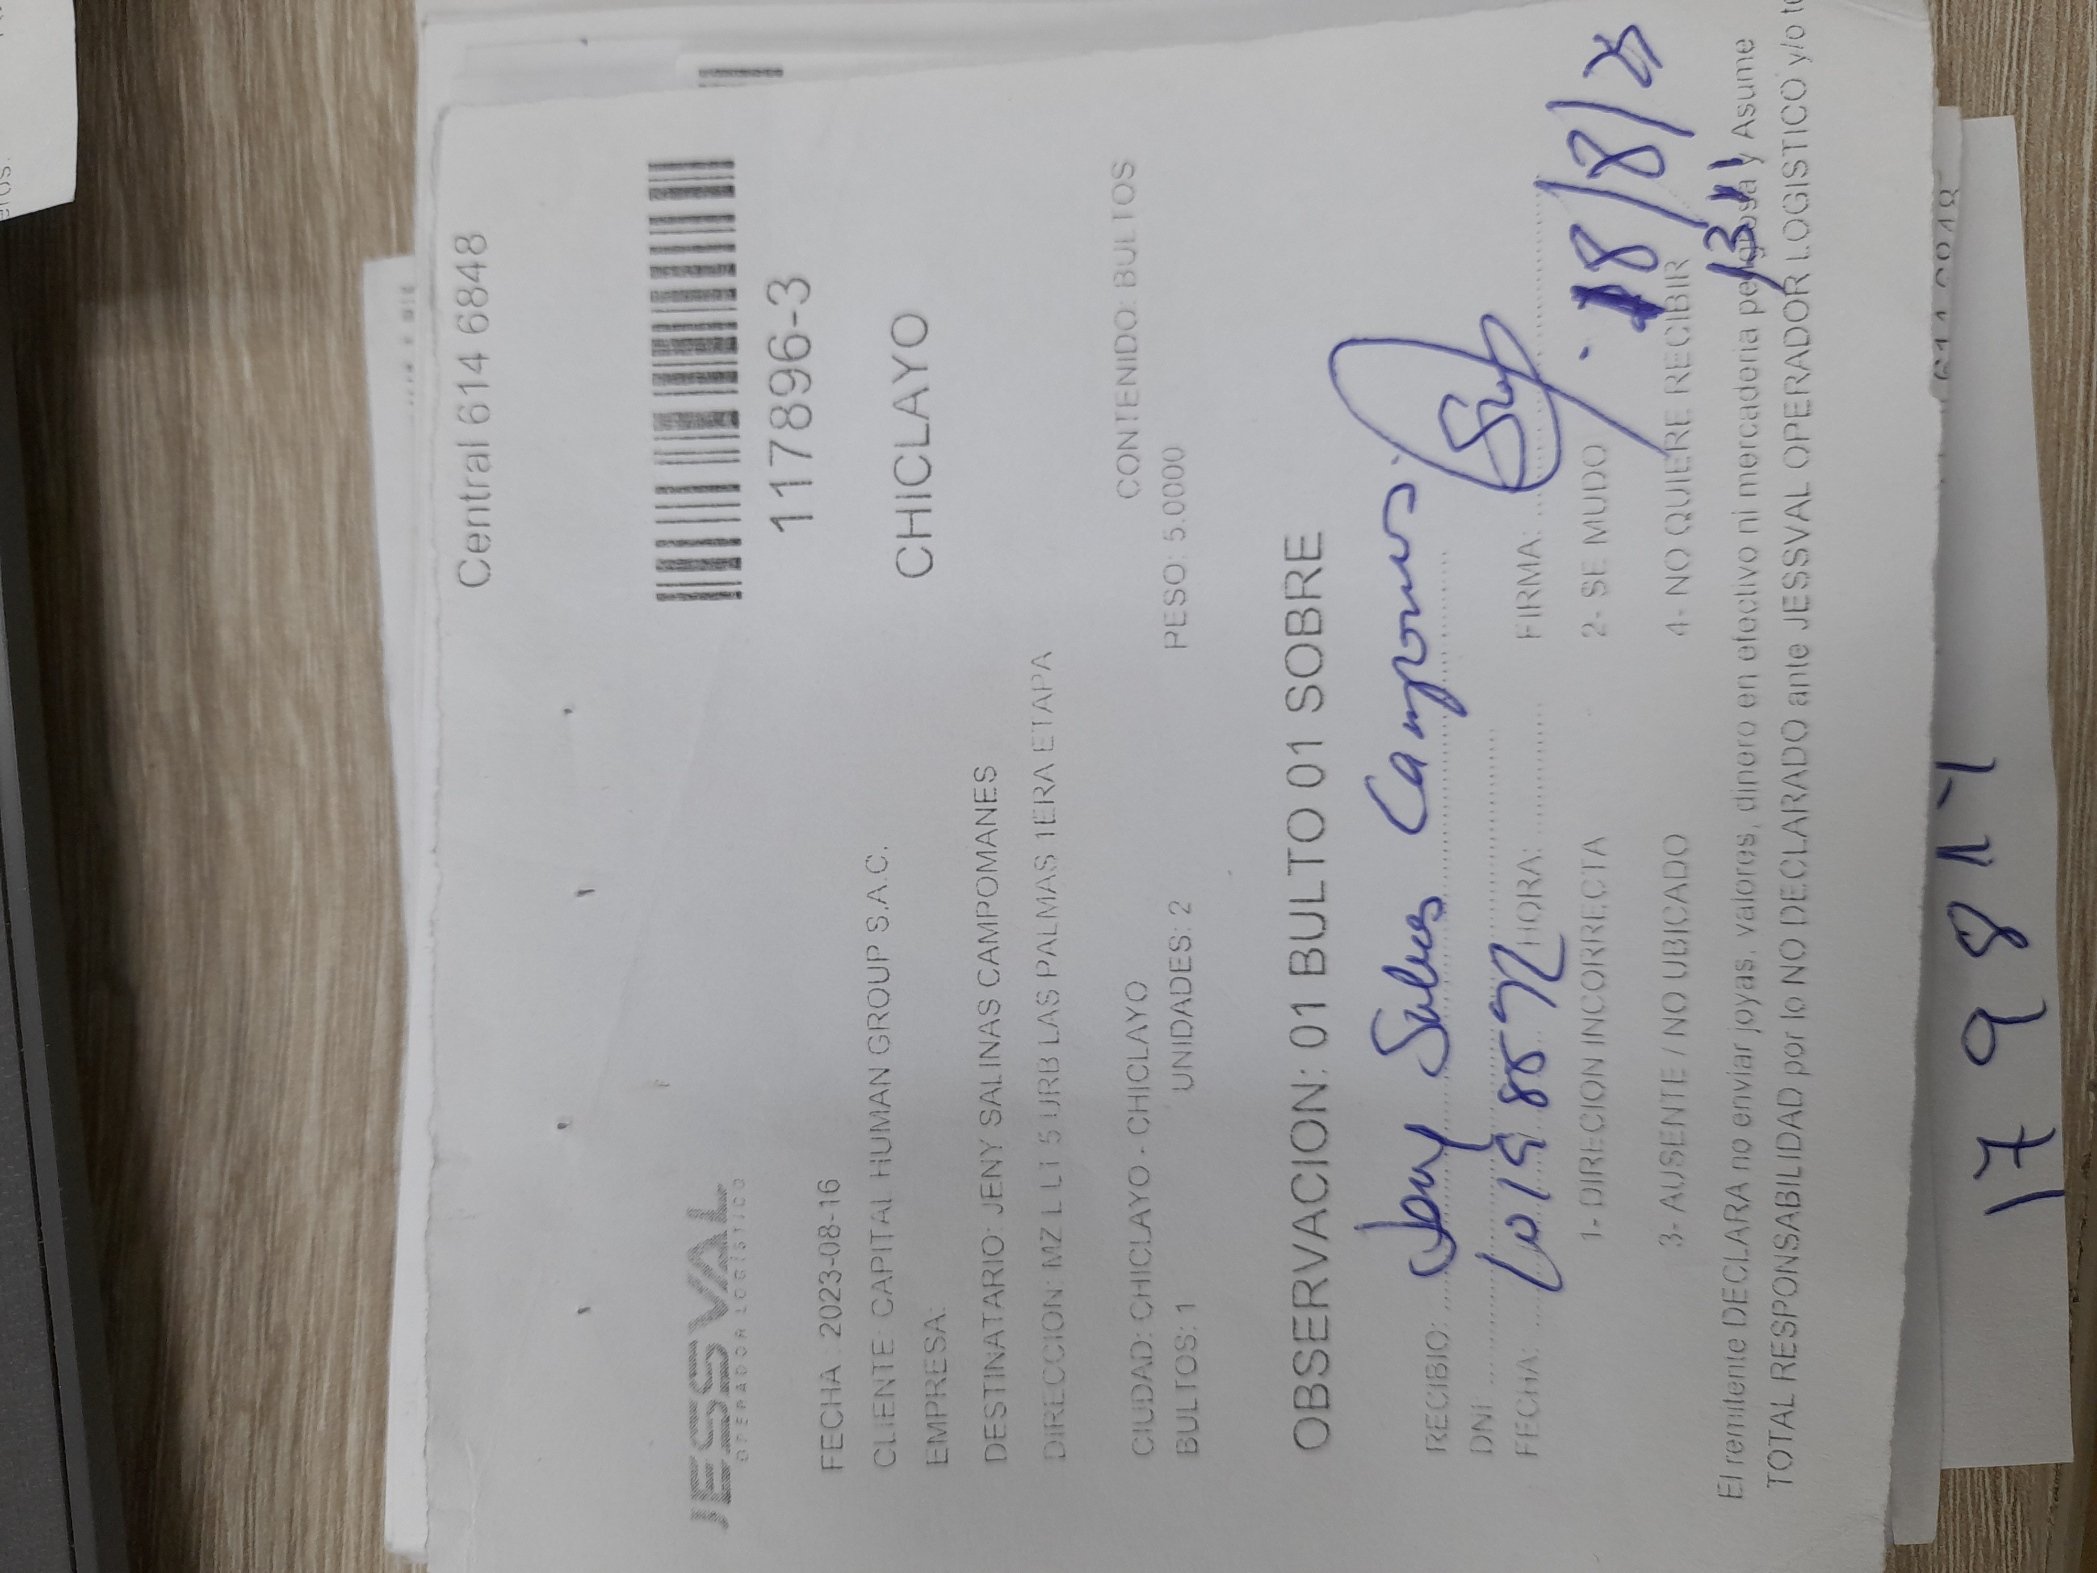 eros.
Central 614 6848
JESSVAL
OPERADOR LOGÍSTICO
117896-3
FECHA : 2023-08-16
CLIENTE: CAPITAL HUMAN GROUP S.A.C.
CHICLAYO
EMPRESA:
DESTINATARIO: JENY SALINAS CAMPOMANES
DIRECCION: MZ L LT 5 URB LAS PALMAS 1ERA ETAPA
CIUDAD: CHICLAYO - CHICLAYO CONTENIDO: BULTOS
BULTOS: 1 UNIDADES: 2 PESO: 5.0000
OBSERVACION: 01 BULTO 01 SOBRE
RECIBIO: Jeny Salinas Campomanes
DNI
FECHA: 10198592 HORA: FIRMA:
1- DIRECION INCORRECTA 2- SE MUDO
18/8/23
3- AUSENTE / NO UBICADO 4- NO QUIERE RECIBIR
13 11
El remitente DECLARA no enviar joyas, valores, dinero en efectivo ni mercaderia peligrosa y Asume
TOTAL RESPONSABILIDAD por lo NO DECLARADO ante JESSVAL OPERADOR LOGISTICO y/o te
614 6848